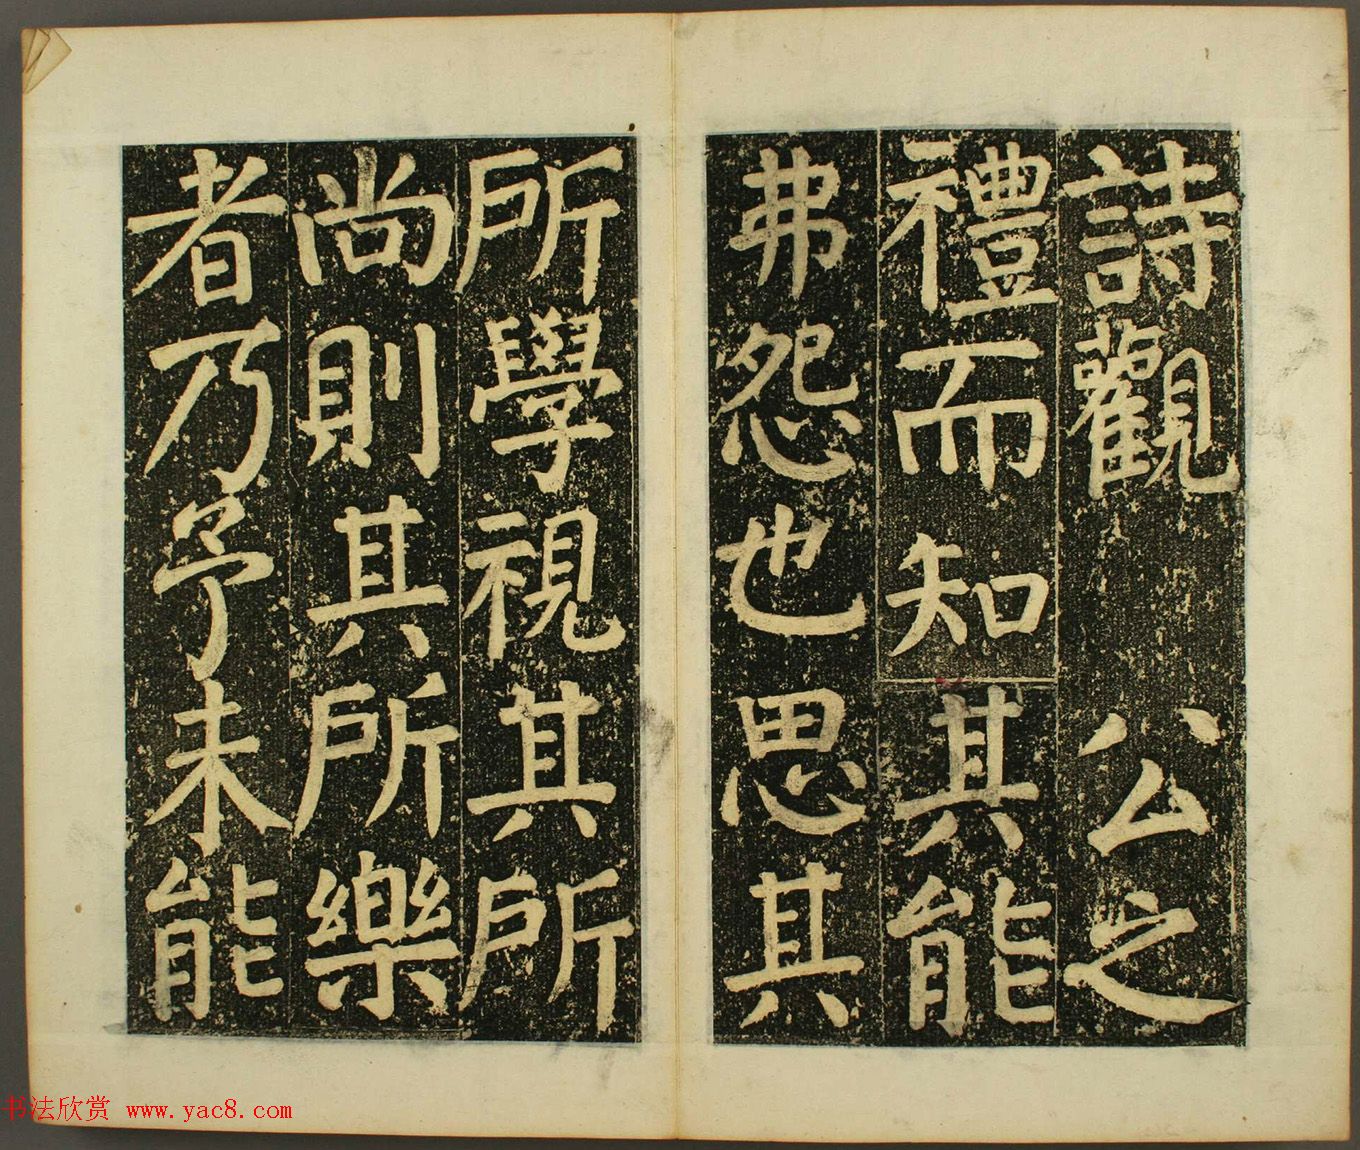 詩觀公之
禮而知其能
弗怨也思其
所學視其所
尚則其所樂
者乃亭未能
书法欣赏 www.yac8.com